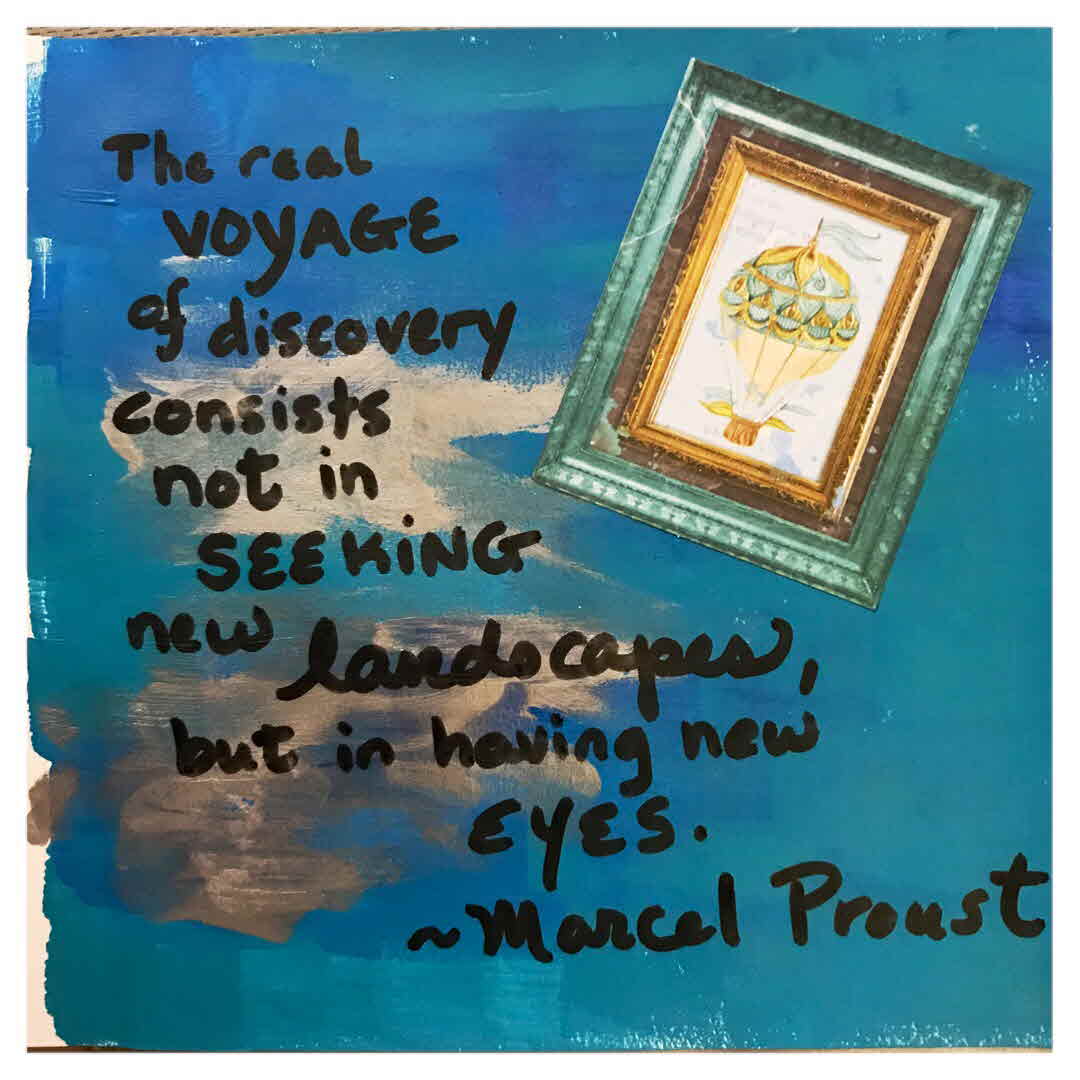 The real
VOYAGE
of discovery
consists
not in
SEEKING
new landscapes,
but in having new
EYES.
~Marcel Proust